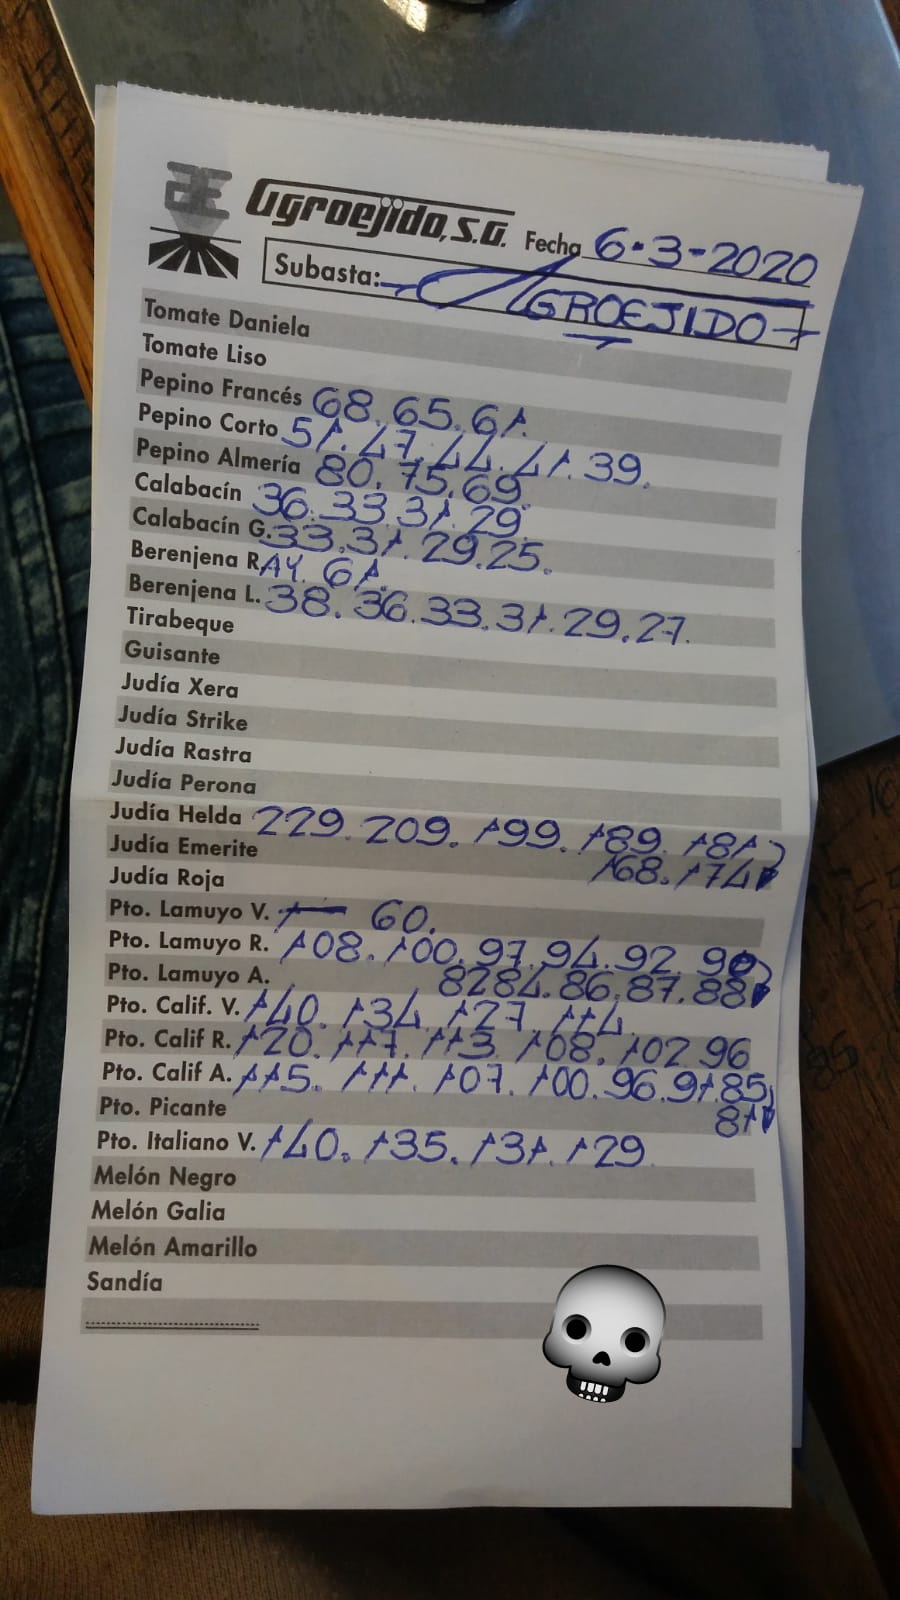 AE Agroejido, S.A. Fecha 6-3-2020
Subasta: AGROEJIDO
Tomate Daniela
Tomate Liso
Pepino Francés 68. 65. 61.
Pepino Corto 51. 47. 44. 41. 39.
Pepino Almería 80. 75. 69.
Calabacín 36. 33. 31. 29.
Calabacín G. 33. 31. 29. 25.
Berenjena R. 61.
Berenjena L. 38. 36. 33. 31. 29. 27.
Tirabeque
Guisante
Judía Xera
Judía Strike
Judía Rastra
Judía Perona
Judía Helda 229. 209. 199. 189. 181
Judía Emerite 168. 174
Judía Roja
Pto. Lamuyo V. 60.
Pto. Lamuyo R. 108. 100. 97. 94. 92. 90
Pto. Lamuyo A. 82 84. 86. 87. 88
Pto. Calif. V. 140. 134. 127. 114.
Pto. Calif R. 120. 117. 113. 108. 102. 96
Pto. Calif A. 115. 111. 107. 100. 96. 91. 85
Pto. Picante 81
Pto. Italiano V. 140. 135. 131. 129
Melón Negro
Melón Galia
Melón Amarillo
Sandía